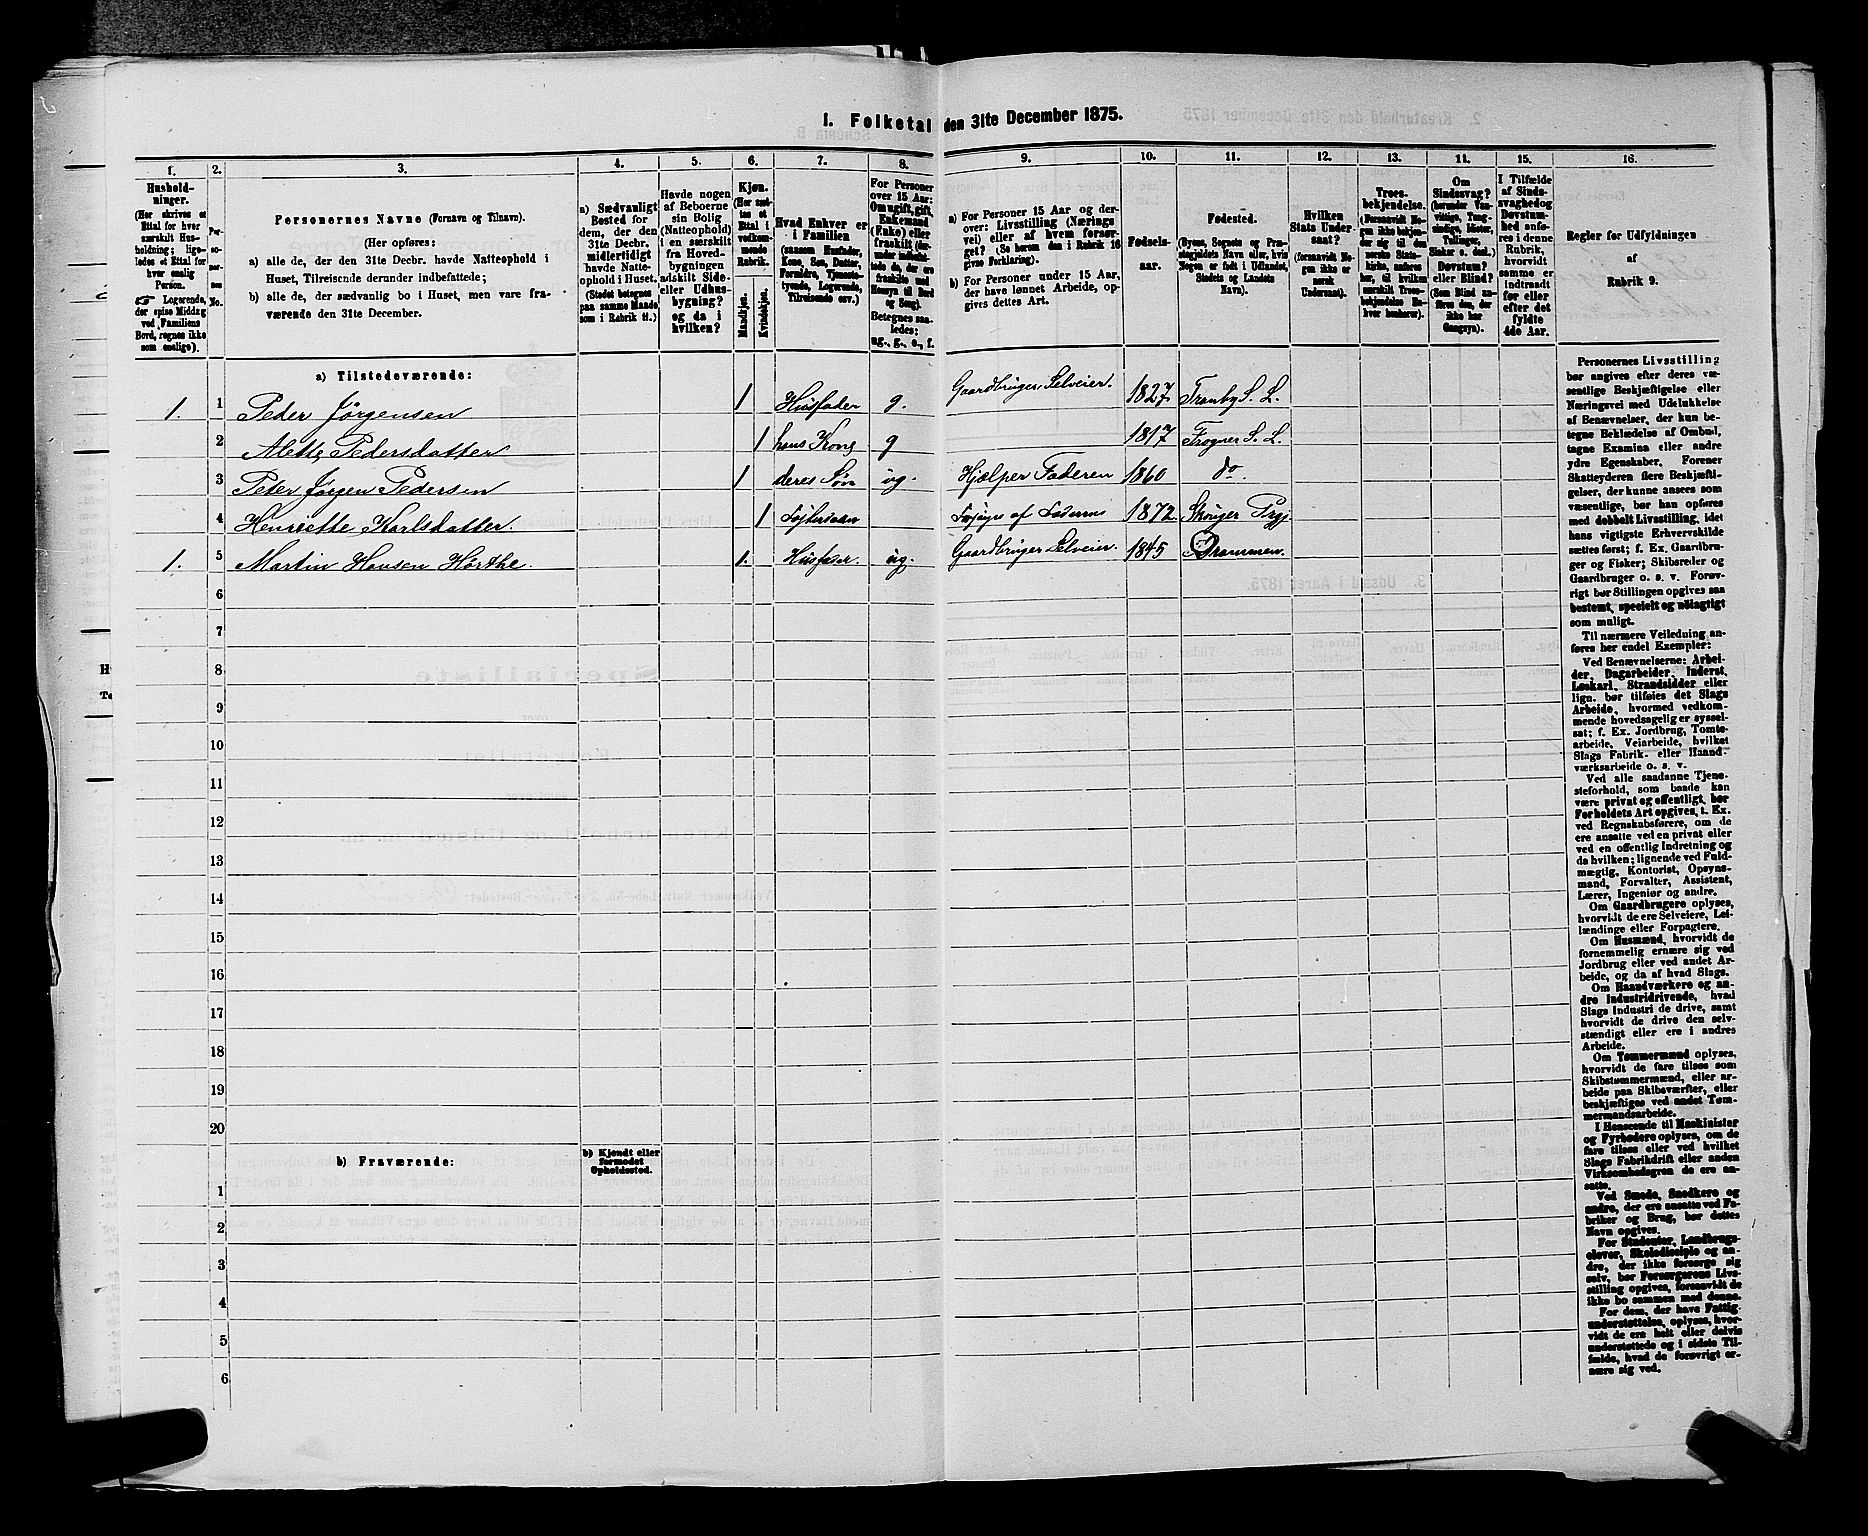 I. Folketal den 31te December 1875.
1. 2. 3. 4. 5. 6. 7. 8. 9. 10. 11. 12. 13. 14. 15. 16.
Hushold-
ninger.
(Her skrives et
Ettal for hver
særskilt Hus-
holdning; lige-
ledes et Ettal for
hver enslig
Person.
☞ Logerende,
der spise Middag
ved Familiens
Bord, regnes ikke
som enslige).
Per-
so-
ner-
nes
No.
Personernes Navne (Fornavn og Tilnavn).
(Her opføres:
a) alle de, der den 31te Decbr. havde Natteophold i
Huset, Tilreisende derunder indbefattede;
b) alle de, der sædvanlig bo i Huset, men vare fra-
værende den 31te December.
a) Sædvanligt
Bosted for
dem, der den
31te Decbr.
midlertidigt
havde Natte-
ophold i Huset.
(Stedet betegnes
paa samme Maade
som i Rubrik 11.)
Havde nogen
af Beboerne
sin Bolig
(Natteophold)
i en særskilt
fra Hoved-
bygningen
adskilt Side-
eller Udhus-
bygning?
og da i
hvilken?
Kjøn.
(Her sæt-
tes et
Ettal i
vedkom-
mende
Rubrik.
Mandkjøn.
Kvindekjøn.
Hvad Enhver er
i Familien
(saasom Husfader,
Kone, Søn, Datter,
Forældre, Tjeneste-
tyende, Logerende,
Tilreisende osv.)
For Personer
over 15 Aar:
Om ugift, gift,
Enkemand
(Enke) eller
fraskilt
Betegnes saa-
ledes:
ug., g., e., f.
a) For Personer 15 Aar og der-
over: Livsstilling (Nærings-
vei) eller af hvem forsør-
get? (Se herom den i Rubrik 16
givne Forklaring).
b) For Personer under 15 Aar,
der have lønnet Arbeide, op-
gives dettes Art.
Fødsels-
aar.
Fødested.
(Byens, Sognets og Præ-
stegjeldets Navn eller, hvis
Nogen er født i Udlandet,
Stedets og Landets
Navn).
Hvilken
Stats Under-
saat?
(forsaavidt No-
gen ikke er
norsk
Undersaat).
Troes-
bekjendelse.
(Forsaavidt No-
gen ikke bekjen-
der sig til den
norske Stats-
kirke, anføres
her, til hvilken
særskilt Troes-
bekjendelse En-
hver henhører).
Om
Sindssvag?
(herunder Van-
vittige, Tung-
sindige, Idioter,
Tullinger,
Sinker o. desl.)
Døvstum?
eller Blind?
(Som Blind an-
føres den, der
ikke har
Gangsyn).
I Tilfælde
af Sinds-
svaghed og
Døvstum-
hed anfø-
res i denne
Rubrik,
hvorvidt
samme er
indtraadt
før eller
efter det
fyldte
4de Aar.
Regler for Udfyldningen
af
Rubrik 9.
a) Tilstedeværende:
1. 1 Peder Jørgensen 1 Husfader g. Gaardbruger Selveier. 1827 Tranby S. L.
2 Alette Pedersdatter 1 hans Kone g 1817 Frogner S. L.
3 Peter Jørgen Pedersen 1 deres Søn ug. Hjælper Faderen 1860 do.
4 Henriette Karlsdatter. 1 af 1872 Skouger Prgj.
1. 5 Martin Hansen Hørthe. 1. Husfader. ug. Gaardbruger Selveier. 1845 Drammen.
6
7
8
9
10
11
12
13
14
15
16
17
18
19
20
b) Fraværende:
b) Kjendt eller
formodet
Opholdssted.
1
2
3
4
5
6
Personernes Livsstilling
bør angives efter deres væ-
sentlige Beskjæftigelse eller
Næringsvei med Udelukkelse
af Benævnelser, der kun be-
tegne Beklædelse af Ombud,
tagne Examina eller andre
ydre Egenskaber. Forener
Skatteyderen flere Beskjæfti-
gelser, der kunne ansees som
væsentlige, bør han opføres
med dobbelt Livsstilling, idet
hans vigtigste Erhvervskilde
sættes først; f. Ex. Gaardbru-
ger og Fisker; Skibsreder og
Gaardbruger o. s. v. Forøv-
rigt bør Stillingen opgives saa
bestemt, specielt og nøiagtigt
som muligt.
Til nærmere Veiledning an-
føres her endel Exempler:
Ved Benævnelserne: Arbei-
der, Dagarbeider, Inderst,
Løskarl, Strandsidder eller
lign. bør tilføies det Slags
Arbeide, hvormed vedkom-
mende hovedsagelig er syssel-
sat; f. Ex. Jordbrug, Tomte-
arbeide, Veiarbeide, hvilket
Slags Fabrik- eller Haand-
værksarbeide o. s. v.
Ved alle saadanne Tjene-
steforhold, som baade kan
være privat og offentligt, bør
Forholdets Art opgives, t. Ex.
ved Regnskabsførere, om de
ere ansatte ved en privat eller
ved en offentlig Indretning og
da hvilken; lignende ved Fuld-
mægtig, Kontorist, Opsyns-
mand, Forvalter, Assistent,
Lærer, Ingeniør og andre.
Om Gaardbrugere oplyses,
hvorvidt de ere Selveiere, Lei-
lændinge eller Forpagtere.
Om Husmænd, hvorvidt de
fornemmelig ernære sig ved
Jordbrug eller ved andet Ar-
beide, og da af hvad Slags.
Om Haandværkere og an-
dre Industridrivende, hvad
Slags Industri de drive, samt
hvorvidt de drive den selv-
stændigt eller ere i andres
Arbeide.
Om Tømmermænd oplyses,
hvorvidt de fare tilsøs som
Skibstømmermænd, eller ar-
beide paa Skibsværfter, eller
beskjæftiges ved andet Tøm-
mermandsarbeide.
I Henseende til Maskinister
og Fyrbødere oplyses, om de
fare tilsøs eller ved hvilket
Slags Fabrikdrift eller anden
Virksomhedsgren de ere an-
satte.
Ved Smede, Snedkere og
andre, der ere ansatte ved Fa-
briker og Brug, bør dettes
Navn opgives.
For Studenter, Landbrugs-
elever, Skoledisciple og an-
dre, der ikke forsørge sig
selv, bør Forsørgerens Livs-
stilling opgives, forsaavidt de
ikke bo sammen med denne.
For dem, der have Fattig-
understøttelse, oplyses, hvor-
vidt de ere helt eller delvis
understøttede og i sidste Til-
fælde, hvad de forøvrigt er-
nære sig ved.